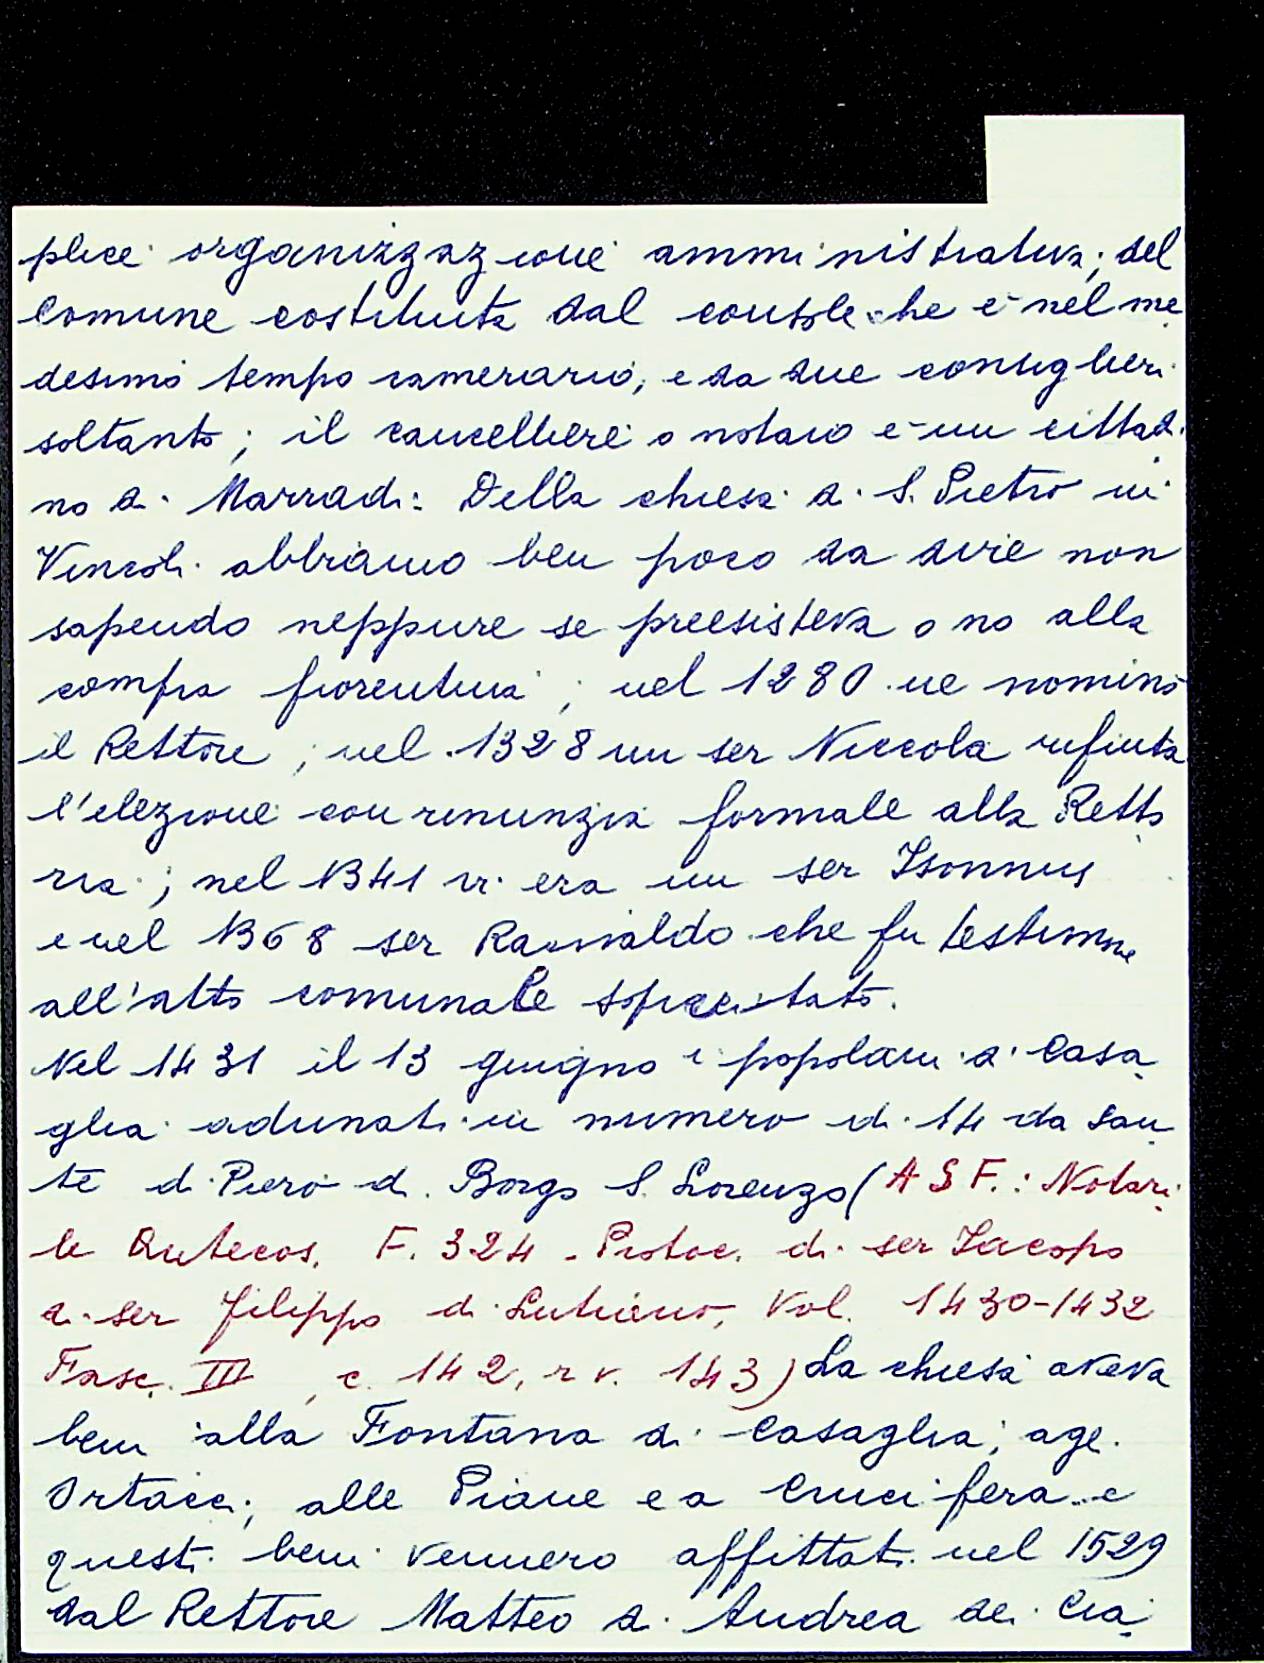 plice organizzazione amministrativa, del
Comune costituita dal console che è nel me
desimo tempo camerario, e da due consiglieri
soltanto; il cancelliere o notaio è un cittad.
no di Marradi: Della chiesa di S. Pietro in
Vincoli abbiamo ben poco da dire non
sapendo neppure se preesisteva o no alla
compra fiorentina; nel 1280 ne nominò
il Rettore; nel 1328 un ser Niccola rifiuta
l'elezione con renunzia formale alla Retto
ria; nel 1341 vi era un ser
e nel 1368 ser Rainaldo che fu testimone
all'atto comunale sopracitato.
Nel 1431 il 13 giugno i popolani di Casa
glia adunati in numero di 14 da San
te di Piero di Borgo S. Lorenzo (A S F.: Notari
le Antecos. F. 324 - Protoc. di ser Iacopo
di ser Filippo di Lutiano, Vol. 1430-1432
Fasc. III, c. 142, r v. 143) La chiesa aveva
beni alla Fontana di Casaglia, agl.
Ortacci, alle Piane e a Crucifera e
questi beni vennero affittati nel 1529
dal Rettore Matteo di Andrea dei Cia